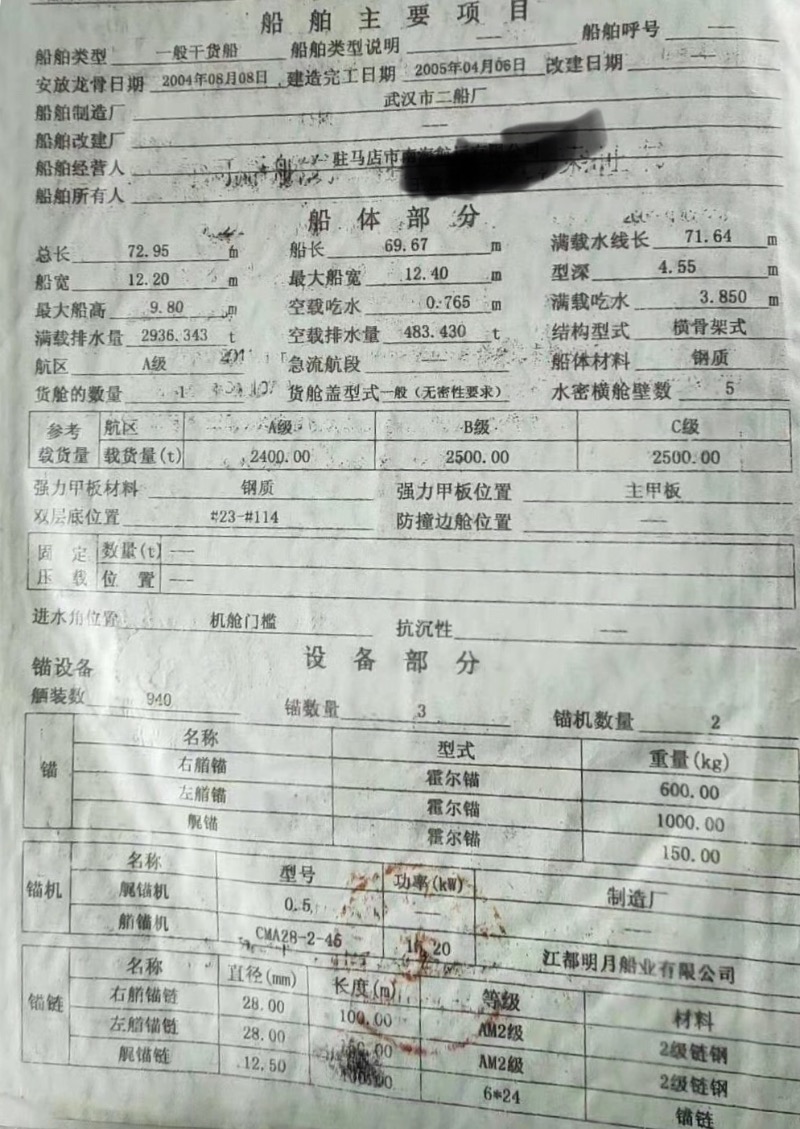 船舶主要项目
船舶类型 一般干货船 船舶类型说明 — 船舶呼号 —
安放龙骨日期 2004年08月08日 建造完工日期 2005年04月06日 改建日期 —
船舶制造厂 武汉市二船厂
船舶改建厂 —
船舶经营人 驻马店市
船舶所有人
船体部分
总长 72.95 m 船长 69.67 m 满载水线长 71.64 m
船宽 12.20 m 最大船宽 12.40 m 型深 4.55 m
最大船高 9.80 m 空载吃水 0.765 m 满载吃水 3.850 m
满载排水量 2936.343 t 空载排水量 483.430 t 结构型式 横骨架式
航区 A级 急流航段 — 船体材料 钢质
货舱的数量 1 货舱盖型式 一般（无密性要求） 水密横舱壁数 5
参考 航区 A级 B级 C级
载货量 载货量(t) 2400.00 2500.00 2500.00
强力甲板材料 钢质 强力甲板位置 主甲板
双层底位置 #23-#114 防撞边舱位置 —
固定 数量(t) —
压载 位置 —
进水角位置 机舱门槛 抗沉性 —
设备部分
锚设备
舾装数 940 锚数量 3 锚机数量 2
锚 名称 型式 重量(kg)
右艏锚 霍尔锚 600.00
左艏锚 霍尔锚 1000.00
艉锚 霍尔锚 150.00
锚机 名称 型号 功率(kW) 制造厂
艉锚机 0.5 — —
艏锚机 CMA28-2-45 江都明月船业有限公司
锚链 名称 直径(mm) 长度(m) 等级 材料
右艏锚链 28.00 100.00 AM2级 2级链钢
左艏锚链 28.00 AM2级 2级链钢
艉锚链 12.50 6*24 锚链